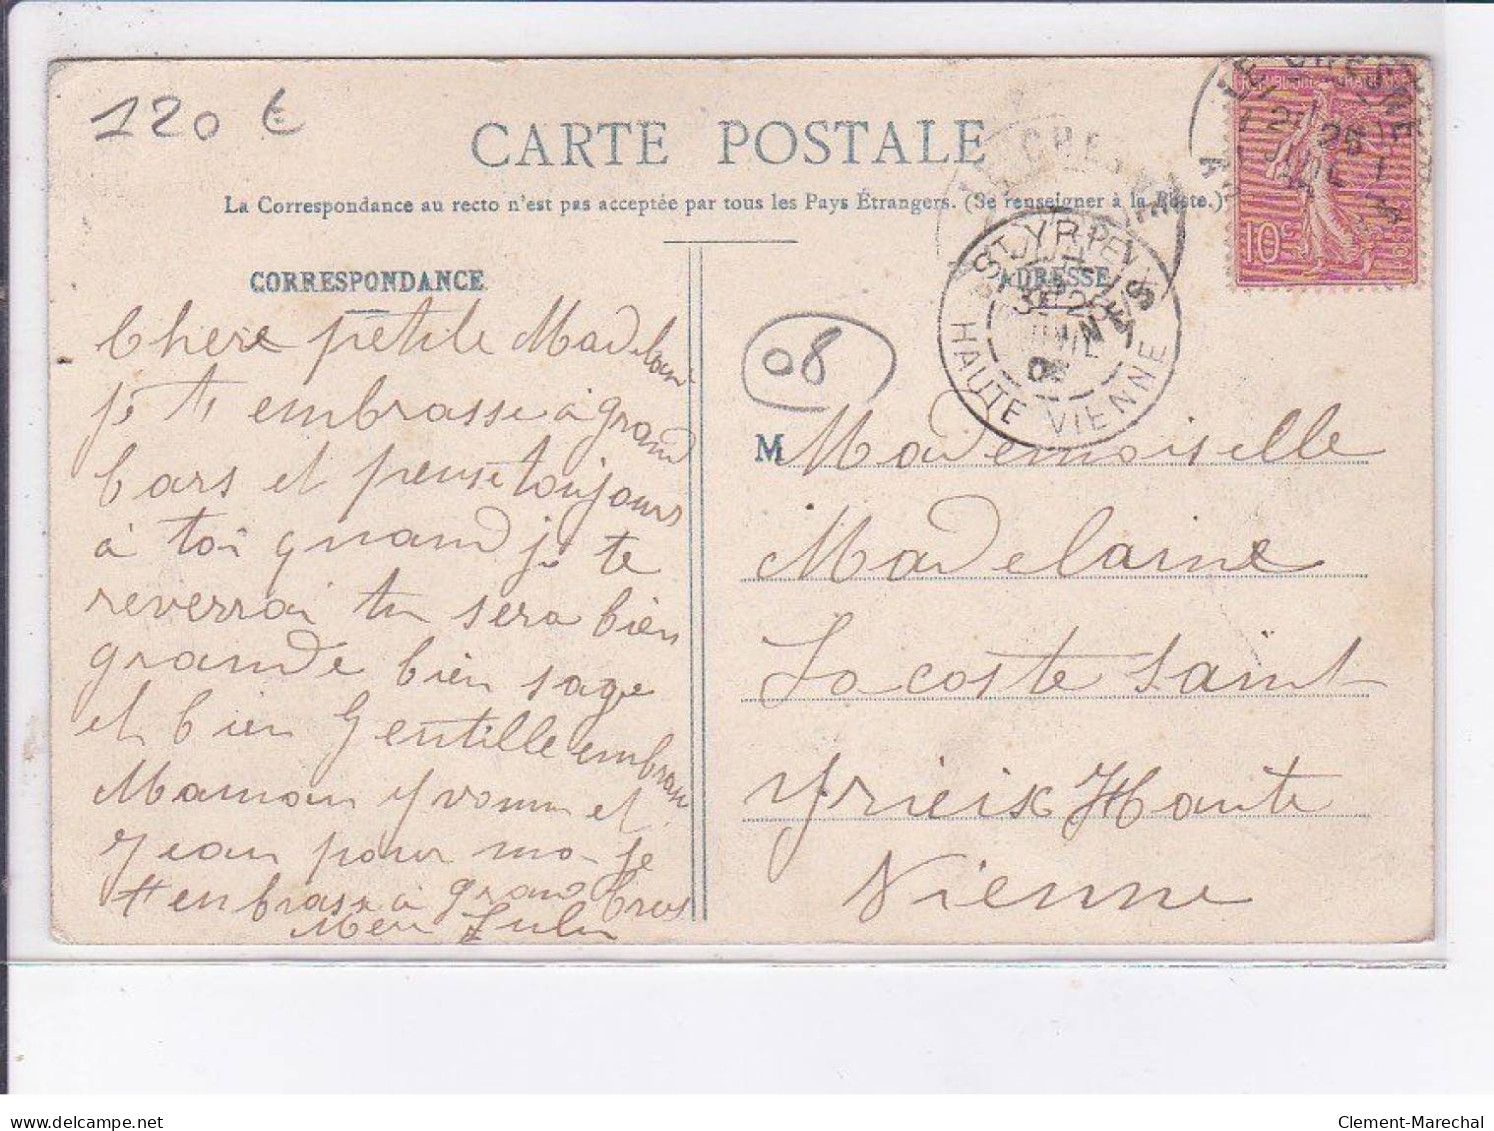 120 €
CARTE POSTALE
La Correspondance au recto n'est pas acceptée par tous les Pays Étrangers. (Se renseigner à la Poste.)
CORRESPONDANCE
ADRESSE
LE CHESNE
25
JUIL
REPUBLIQUE FRANCAISE
10
HAUTE VIENNE
08
Chere petite Madelaine
je te embrasse à grand
bars et pense toujours
à toi quand je te
reverrai tu sera bien
grande bien sage
et bien Gentille embrasse
Maman Yvonne et
Jean pour moi je
t'enbrasse à grand bras
Lulu
M Mademoiselle
Madelaine
Lacoste Saint
Yrieix Haute
Vienne
delcampe.net
Clement-Marechal